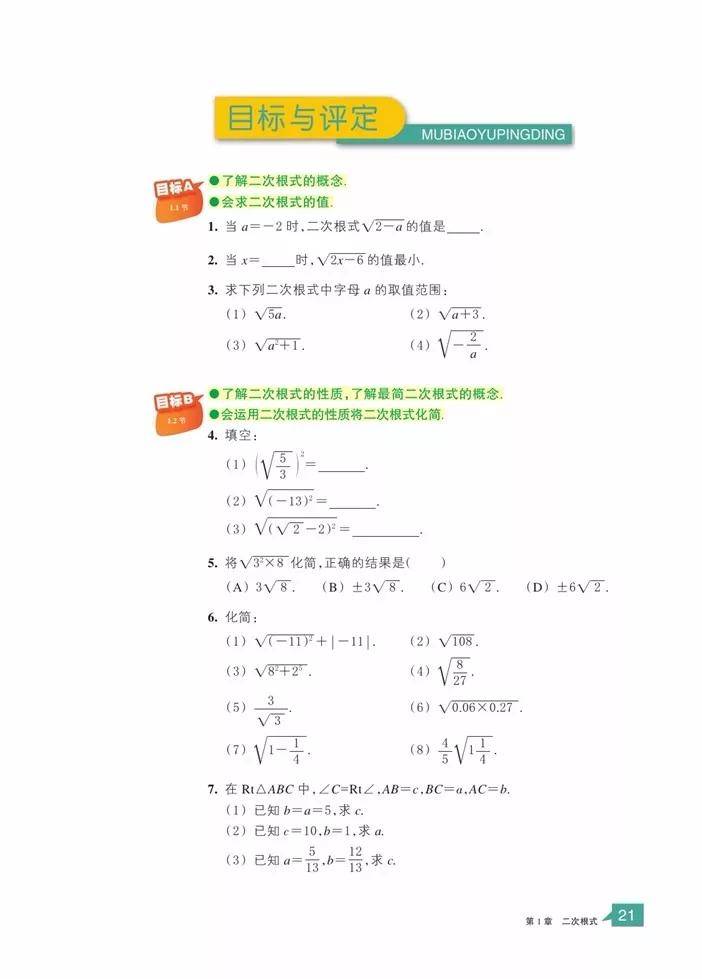 目标与评定
MUBIAOYUPINGDING
目标A
1.1 节
●了解二次根式的概念.
●会求二次根式的值.
1. 当 a=-2 时,二次根式√(2-a) 的值是_____.
2. 当 x=_____时,√(2x-6) 的值最小.
3. 求下列二次根式中字母 a 的取值范围:
(1) √(5a). (2) √(a+3).
(3) √(a²+1). (4) √(-2/a).
目标B
1.2 节
●了解二次根式的性质,了解最简二次根式的概念.
●会运用二次根式的性质将二次根式化简.
4. 填空:
(1) (√(5/3))²=_______.
(2) √((-13)²)=_______.
(3) √((√2-2)²)=__________.
5. 将√(3²×8) 化简,正确的结果是( )
(A) 3√8. (B) ±3√8. (C) 6√2. (D) ±6√2.
6. 化简:
(1) √((-11)²)+|-11|. (2) √108.
(3) √(8²+2⁵). (4) √(8/27).
(5) 3/√3. (6) √(0.06×0.27).
(7) √(1-1/4). (8) 4/5√(1 1/4).
7. 在 Rt△ABC 中,∠C=Rt∠,AB=c,BC=a,AC=b.
(1) 已知 b=a=5,求 c.
(2) 已知 c=10,b=1,求 a.
(3) 已知 a=5/13,b=12/13,求 c.
第 1 章 二次根式 21